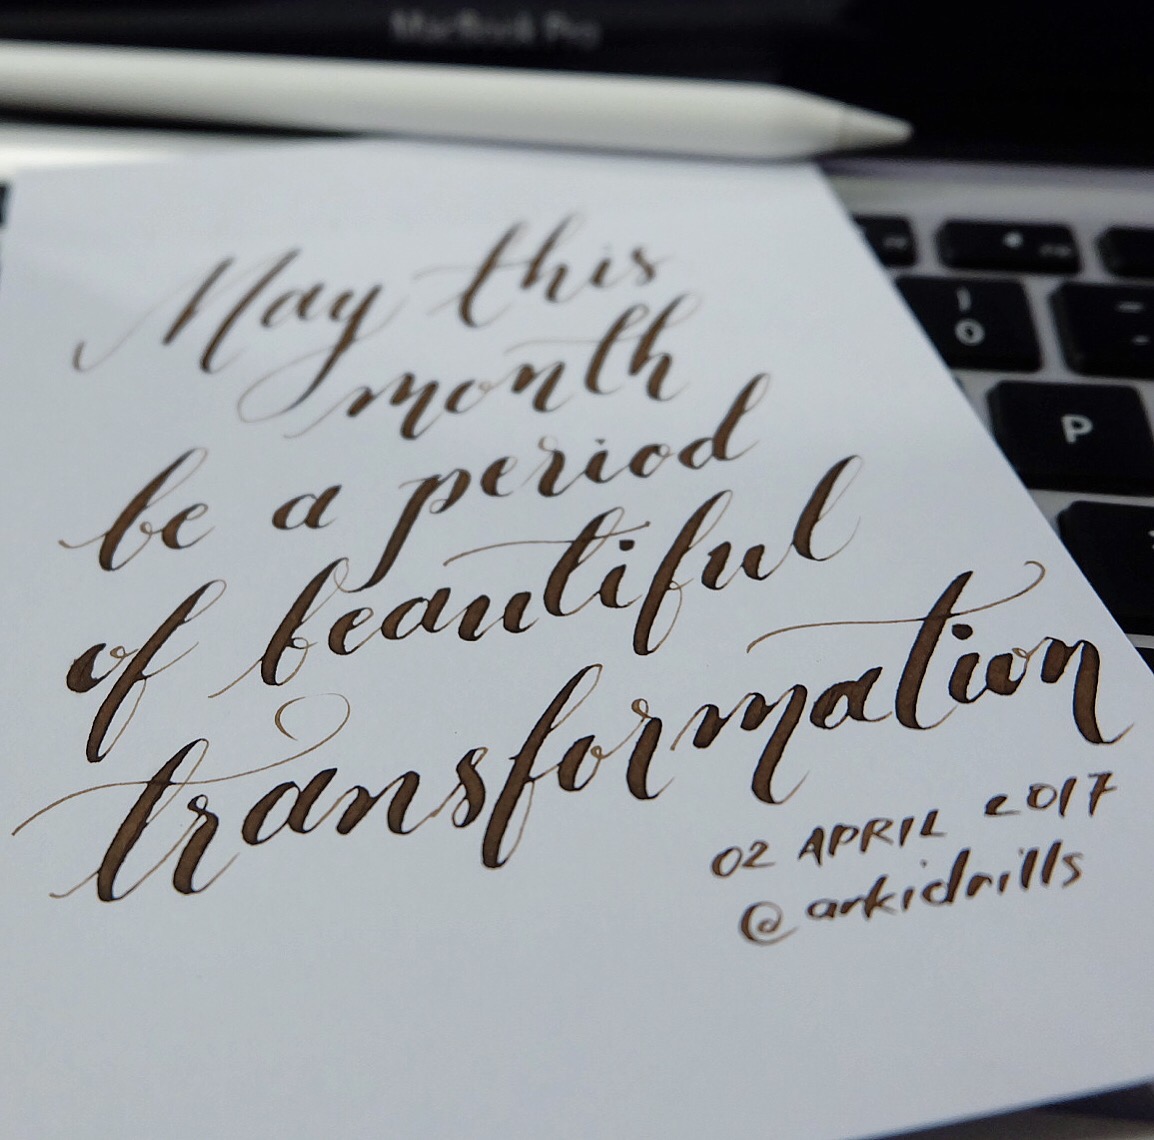 MacBook Pro
May this
month
be a period
of beautiful
transformation
02 APRIL 2017
@arkidrills
)
0
P